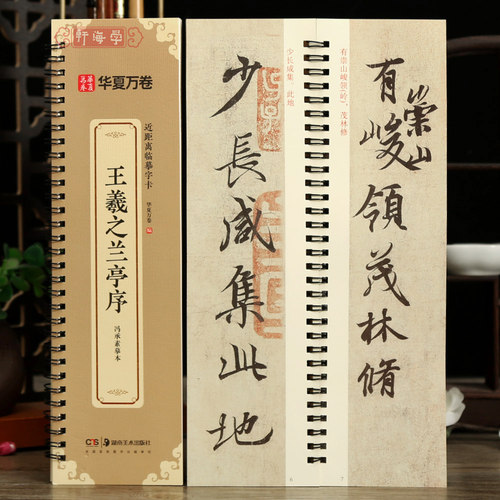 學海軒
華夏萬卷
华夏万卷
近距离临摹字卡
华夏万卷 编
王羲之兰亭序
冯承素摹本
湖南美术出版社
有崇山峻领(岭),茂林修
少长咸集 此地
有崇山峻領茂林脩
少長咸集此地
6
7